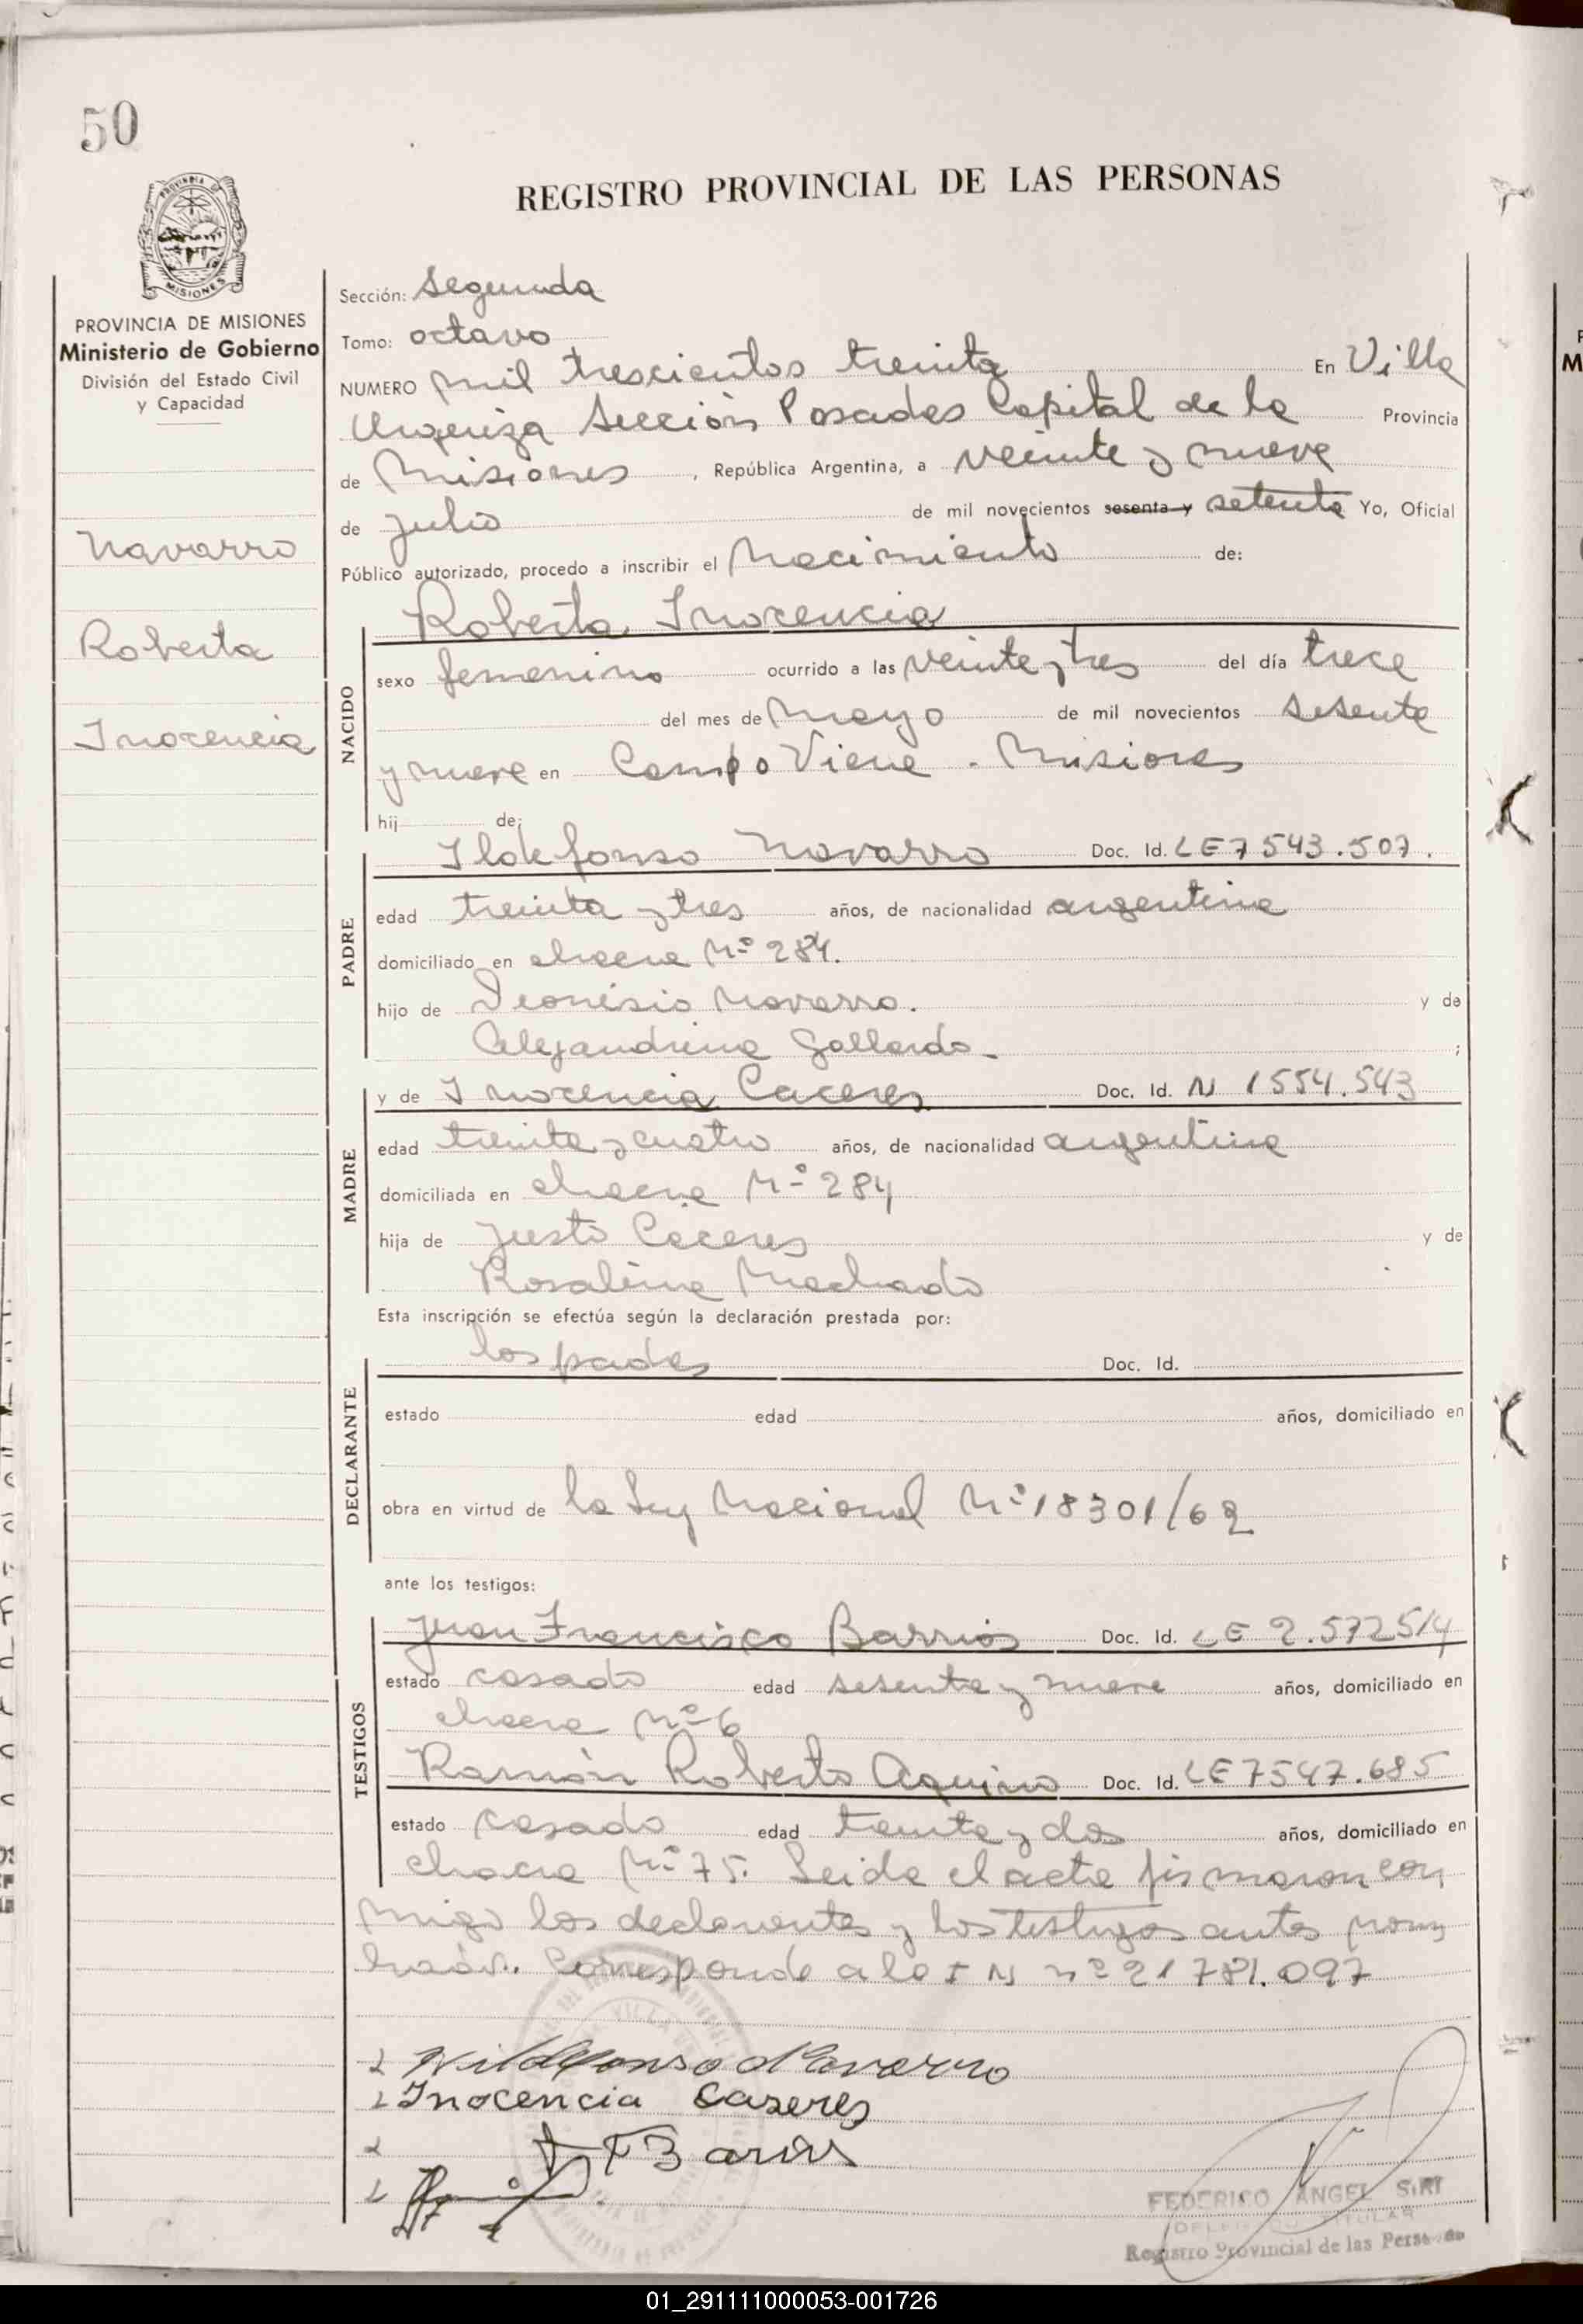 50
REGISTRO PROVINCIAL DE LAS PERSONAS
MISIONES
PROVINCIA DE MISIONES
Ministerio de Gobierno
División del Estado Civil
y Capacidad
Navarro
Roberta
Inocencia
Sección: Segunda
Tomo: octavo
NUMERO mil trescientos treinta En Villa
Urquiza Sección Posadas Capital de la Provincia
de Misiones, República Argentina, a veinte y nueve
de julio de mil novecientos sesenta y setenta Yo, Oficial
Público autorizado, procedo a inscribir el Nacimiento de:
Roberta Inocencia
NACIDO
sexo femenino ocurrido a las veinte y tres del día trece
del mes de Mayo de mil novecientos sesenta
y nueve en Campo Viera - Misiones
hij de:
Ildefonso Navarro Doc. Id. LE 7543.507.
PADRE
edad treinta y tres años, de nacionalidad argentina
domiciliado en chacra Nº 284.
hijo de Dionisio Navarro. y de
Alejandrina Gallardo - ;
y de Inocencia Caceres Doc. Id. N 1554.543
MADRE
edad treinta y cuatro años, de nacionalidad argentina
domiciliada en chacra Nº 284
hija de Justo Caceres y de
Rosalina Machado
Esta inscripción se efectúa según la declaración prestada por:
los padres Doc. Id.
DECLARANTE
estado edad años, domiciliado en
obra en virtud de la Ley Nacional Nº 18301/69
ante los testigos:
Juan Francisco Barrios Doc. Id. LE 2.572514
TESTIGOS
estado casado edad sesenta y nueve años, domiciliado en
chacra Nº 6
Ramón Roberto Aquino Doc. Id. LE 7547.685
estado casado edad treinta y dos años, domiciliado en
chacra Nº 75. Leida el acta firmaron con
migo los declarantes y los testigos antes nom
brados. Corresponde a la I N nº 21 781.097
Hildefonso Navarro
Inocencia Caseres
FEDERICO ANGEL SIRI
TITULAR
Registro Provincial de las Personas
01_291111000053-001726